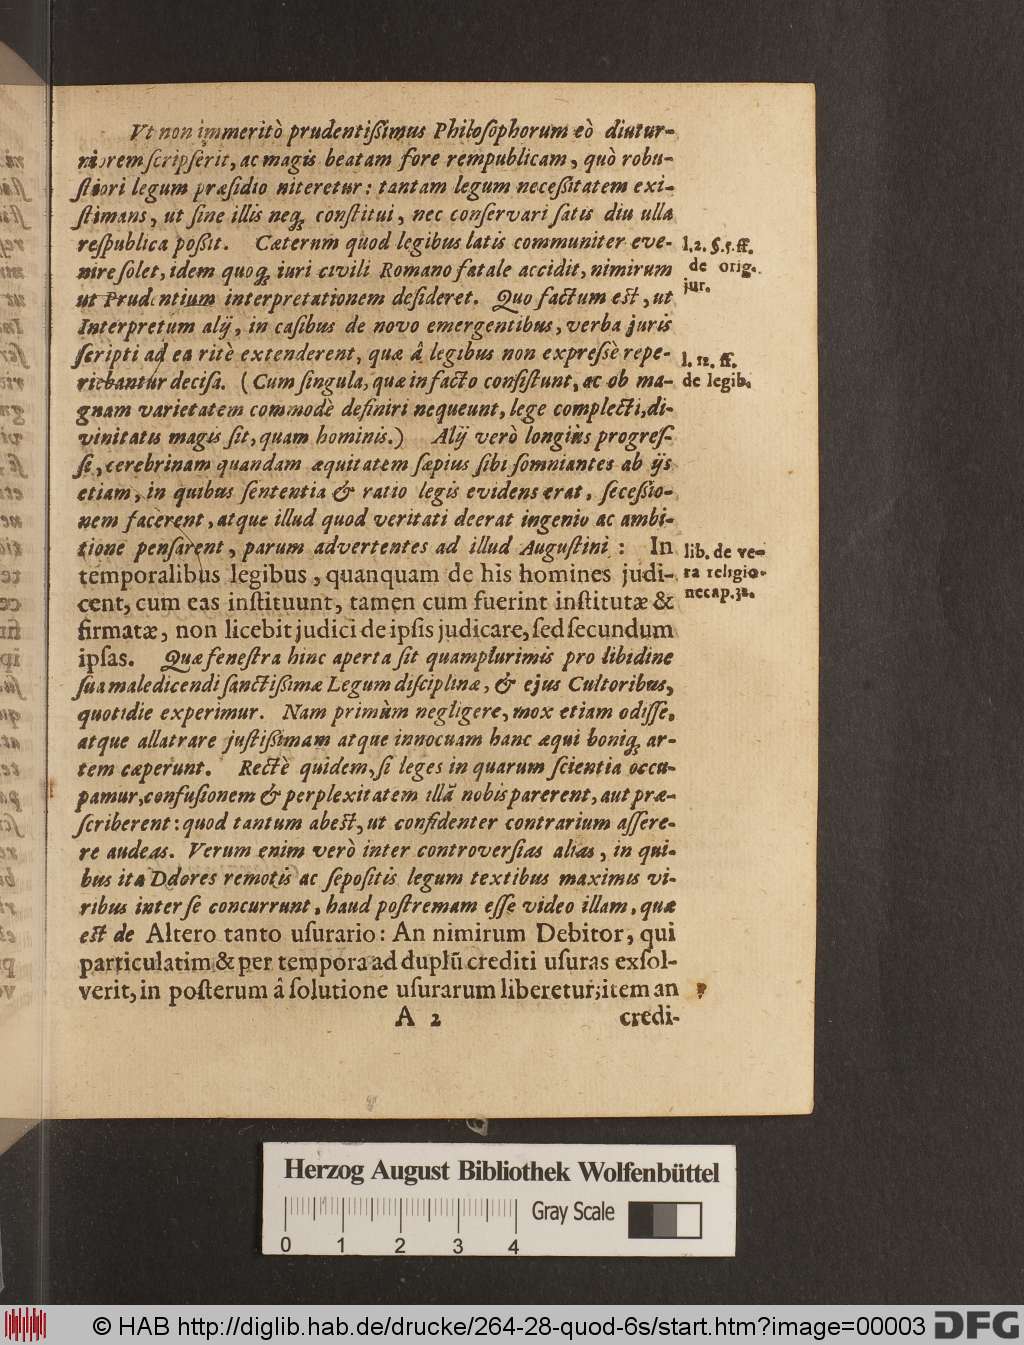 Ut non immeritò prudentißimus Philoſophorum eò diutur-
niorem ſcripſerit, ac magis beatam fore rempublicam, quò robu-
ſtiori legum præſidio niteretur: tantam legum neceßitatem exi-
ſtimans, ut ſine illis neq; conſtitui, nec conſervari ſatis diu ulla
reſpublica poßit. Cæterum quod legibus latis communiter eve-
nire ſolet, idem quoq; iuri civili Romano fatale accidit, nimirum
ut Prudentium interpretationem deſideret. Quo factum est, ut
Interpretum alij, in caſibus de novo emergentibus, verba juris
ſcripti ad ea ritè extenderent, quæ â legibus non expreſsè repe-
riebantur deciſa. (Cum ſingula, quæ in facto conſiſtunt, ac ob ma-
gnam varietatem commodè definiri nequeunt, lege complecti, di-
vinitatis magis ſit, quam hominis.) Alij verò longiùs progreſ-
ſi, cerebrinam quandam æquitatem ſæpius ſibi ſomniantes ab ijs
etiam, in quibus ſententia & ratio legis evidens erat, ſeceßio-
nem facerent, atque illud quod veritati deerat ingenio ac ambi-
tione penſarent, parum advertentes ad illud Auguſtini: In
temporalibus legibus, quanquam de his homines judi-
cent, cum eas inſtituunt, tamen cum fuerint inſtitutæ &
firmatæ, non licebit judici de ipſis judicare, ſed ſecundum
ipſas. Quæ feneſtra hinc aperta ſit quamplurimis pro libidine
ſua maledicendi ſanctißimæ Legum diſciplinæ, & ejus Cultoribus,
quotidie experimur. Nam primùm negligere, mox etiam odiſſe,
atque allatrare juſtißimam atque innocuam hanc æqui boniq; ar-
tem cæperunt. Rectè quidem, ſi leges in quarum ſcientia occu-
pamur, confuſionem & perplexitatem illã nobis parerent, aut præ-
ſcriberent: quod tantum abest, ut confidenter contrarium aſſere-
re audeas. Verum enim verò inter controverſias alias, in qui-
bus ita Ddores remotis ac ſepoſitis legum textibus maximis vi-
ribus inter ſe concurrunt, haud poſtremam eſſe video illam, quæ
est de Altero tanto uſurario: An nimirum Debitor, qui
particulatim & per tempora ad duplũ crediti uſuras exſol-
verit, in poſterum â ſolutione uſurarum liberetur; item an
A 2 credi-
l. 2. §. 5. ff.
de orig.
jur.
l. 12. ff.
de legib.
lib. de ve-
ra religio-
ne cap. 31.
Herzog August Bibliothek Wolfenbüttel
Gray Scale
0 1 2 3 4
© HAB http://diglib.hab.de/drucke/264-28-quod-6s/start.htm?image=00003 DFG